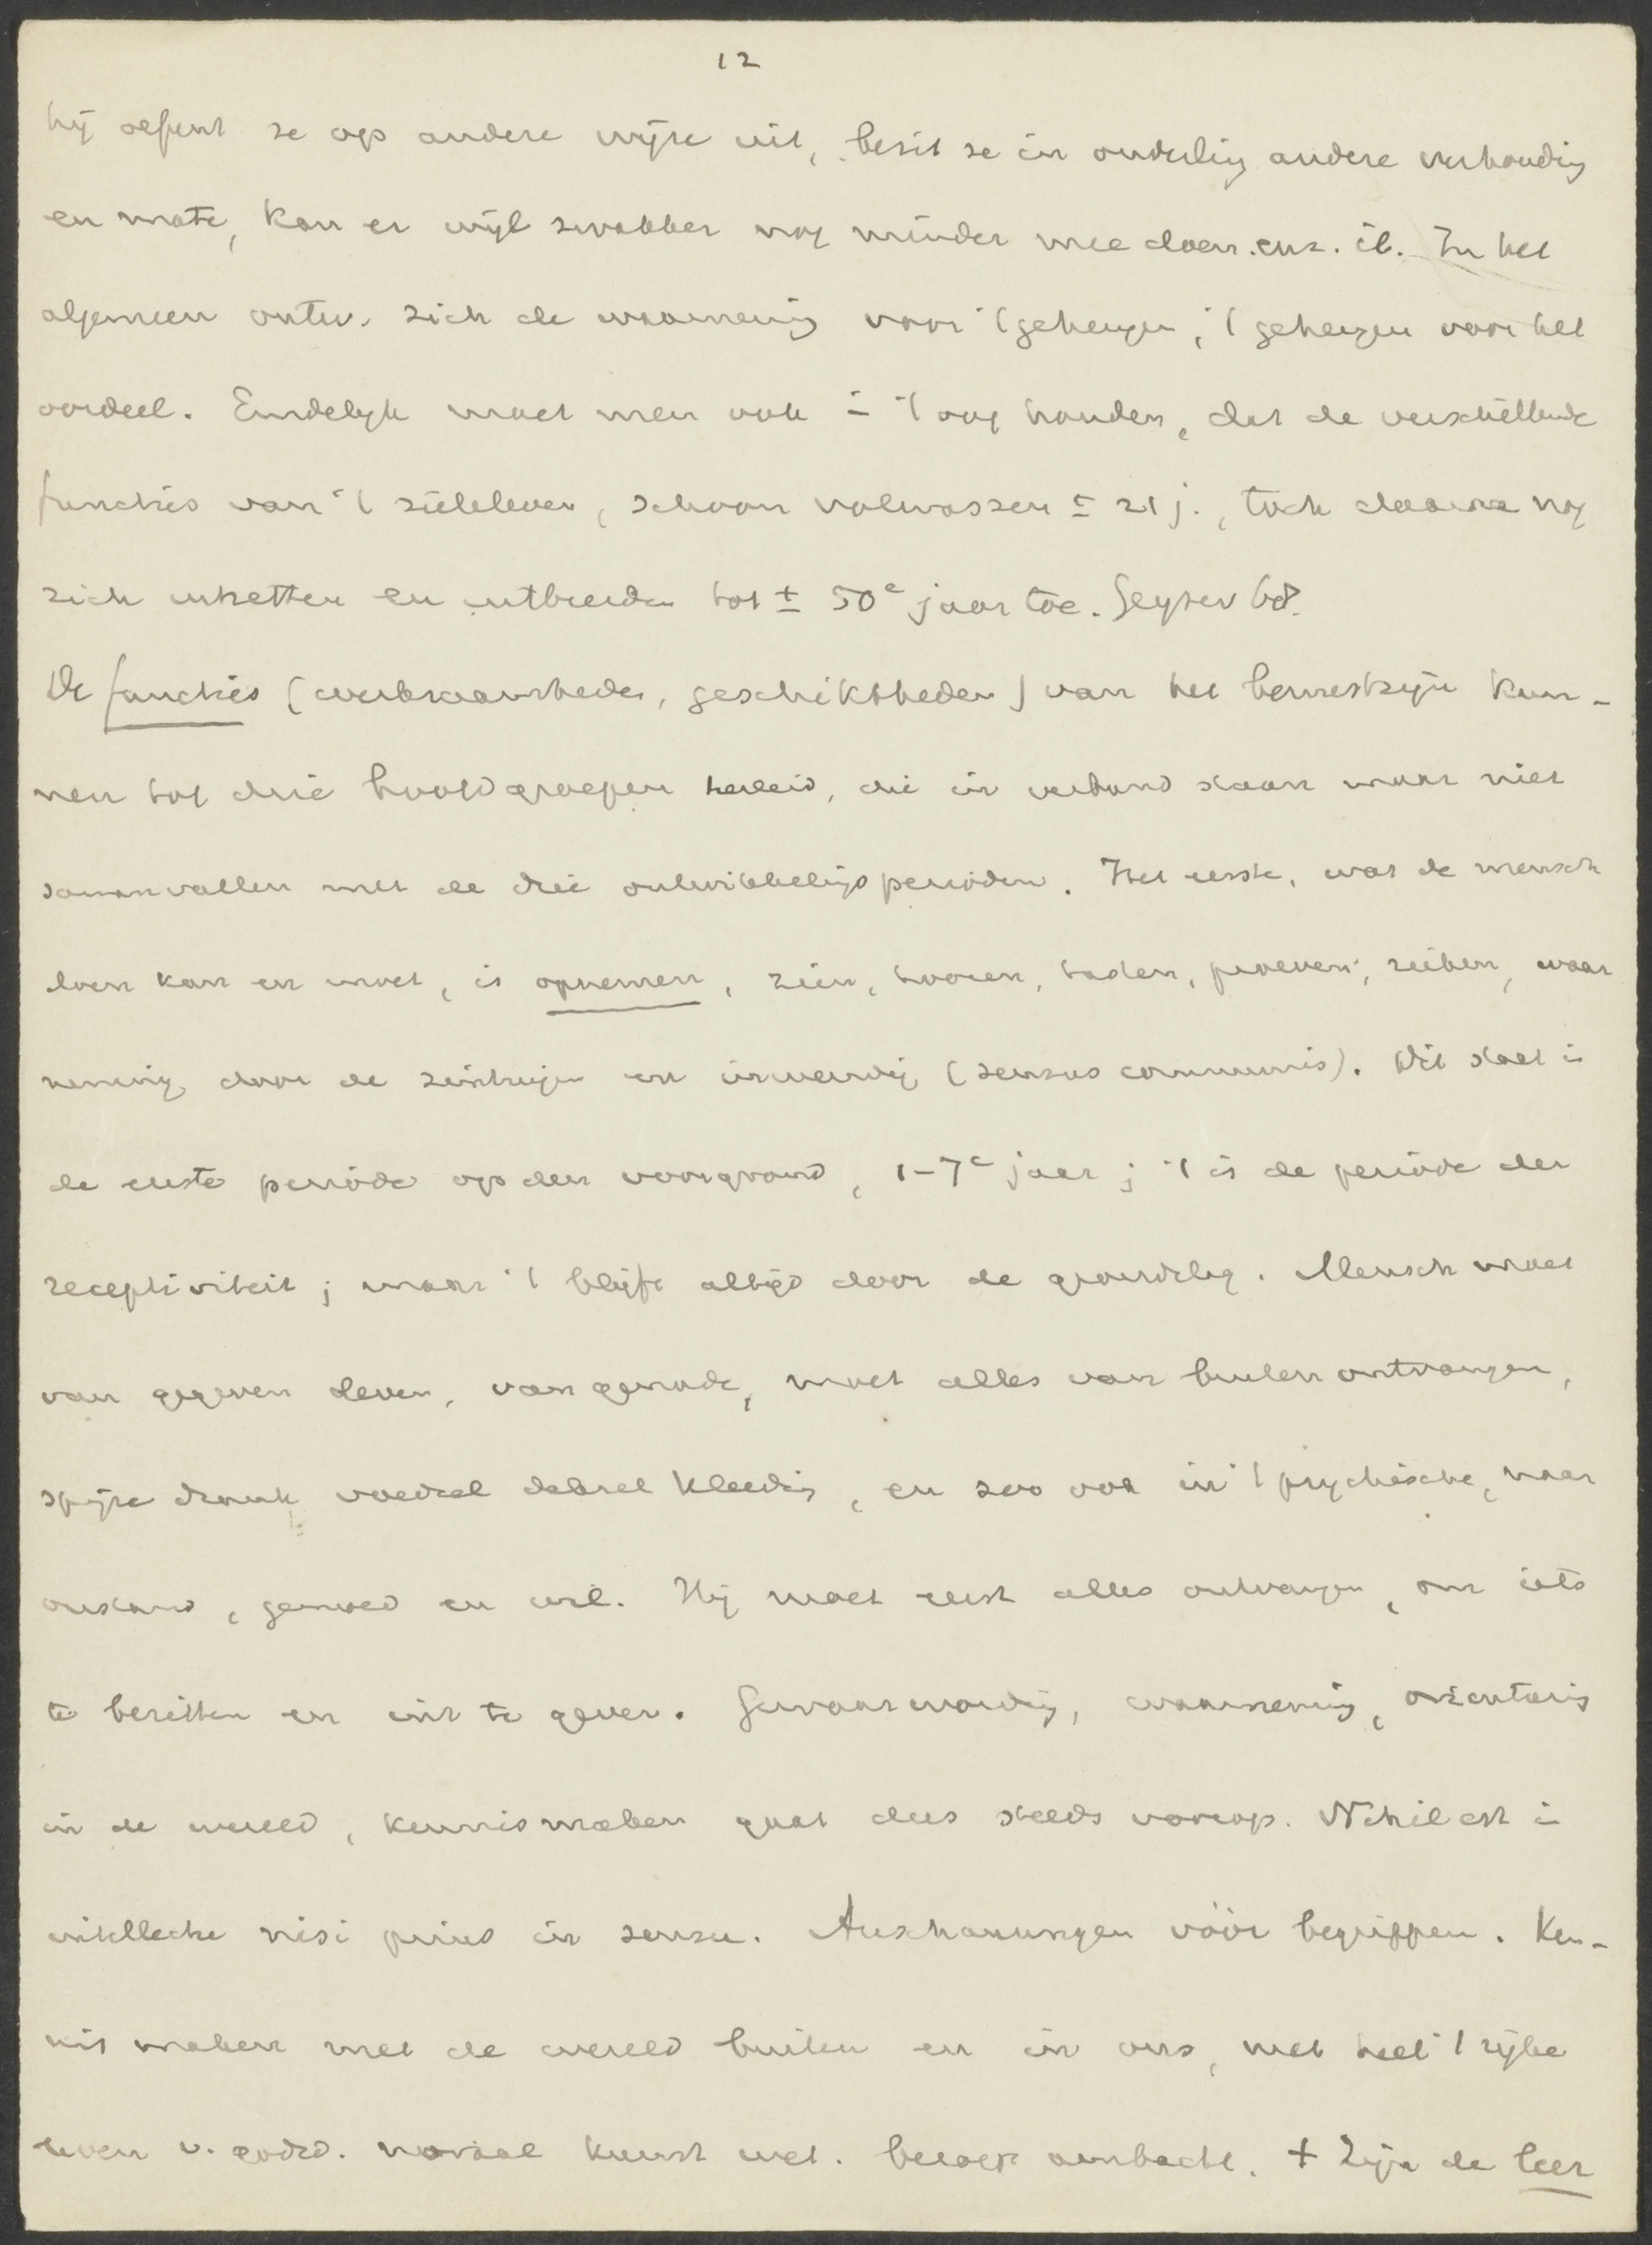 12
hij oefent ze op andere wijze uit, bezit ze in onderling andere verhouding
en mate, kan er wijl zwakker nog minder mee doen. enz. ib. In het
algemeen ontw. zich de waarneming voor 't geheugen, 't geheugen voor het
oordeel. Eindelijk moet men ook in 't oog houden, dat de verschillende
functies van 't zieleleven, schoon volwassen ± 21 j., toch daarna nog
zich uitzetten en uitbreiden tot ± 50e jaar toe. Geyser 68.
De functies (werkzaamheden, geschiktheden) van het bewustzijn kun-
nen tot drie hoofdgroepen herleid, die in verband staan maar niet
samenvallen met de drie ontwikkelingsperioden. Het eerste, wat de mensch
doen kan en moet, is opnemen, zien, hooren, tasten, proeven, ruiken, waar
neming door de zintuigen en inwendig (sensus communis). Dit staat in
de eerste periode op den voorgrond, 1-7e jaar; 't is de periode der
receptiviteit; maar 't blijft altijd door de grondslag. Mensch moet
van gegeven leven, van genade, moet alles van buiten ontvangen,
spijze drank voedsel deksel kleeding, en zoo ook in 't psychische, naar
verstand, gemoed en wil. Hij moet eerst alles ontvangen, om iets
te bezitten en uit te geven. Gewaarwording, waarneming, orienteering
in de wereld, kennismaken gaat dus steeds voorop. Nihil est in
intellectu nisi prius in sensu. Anschauungen vóór begrippen. Ken-
nis maken met de wereld buiten en in ons, met heel 't rijke
leven v. godsd. moraal kunst wet. beroep ambacht. + Zijn de leer